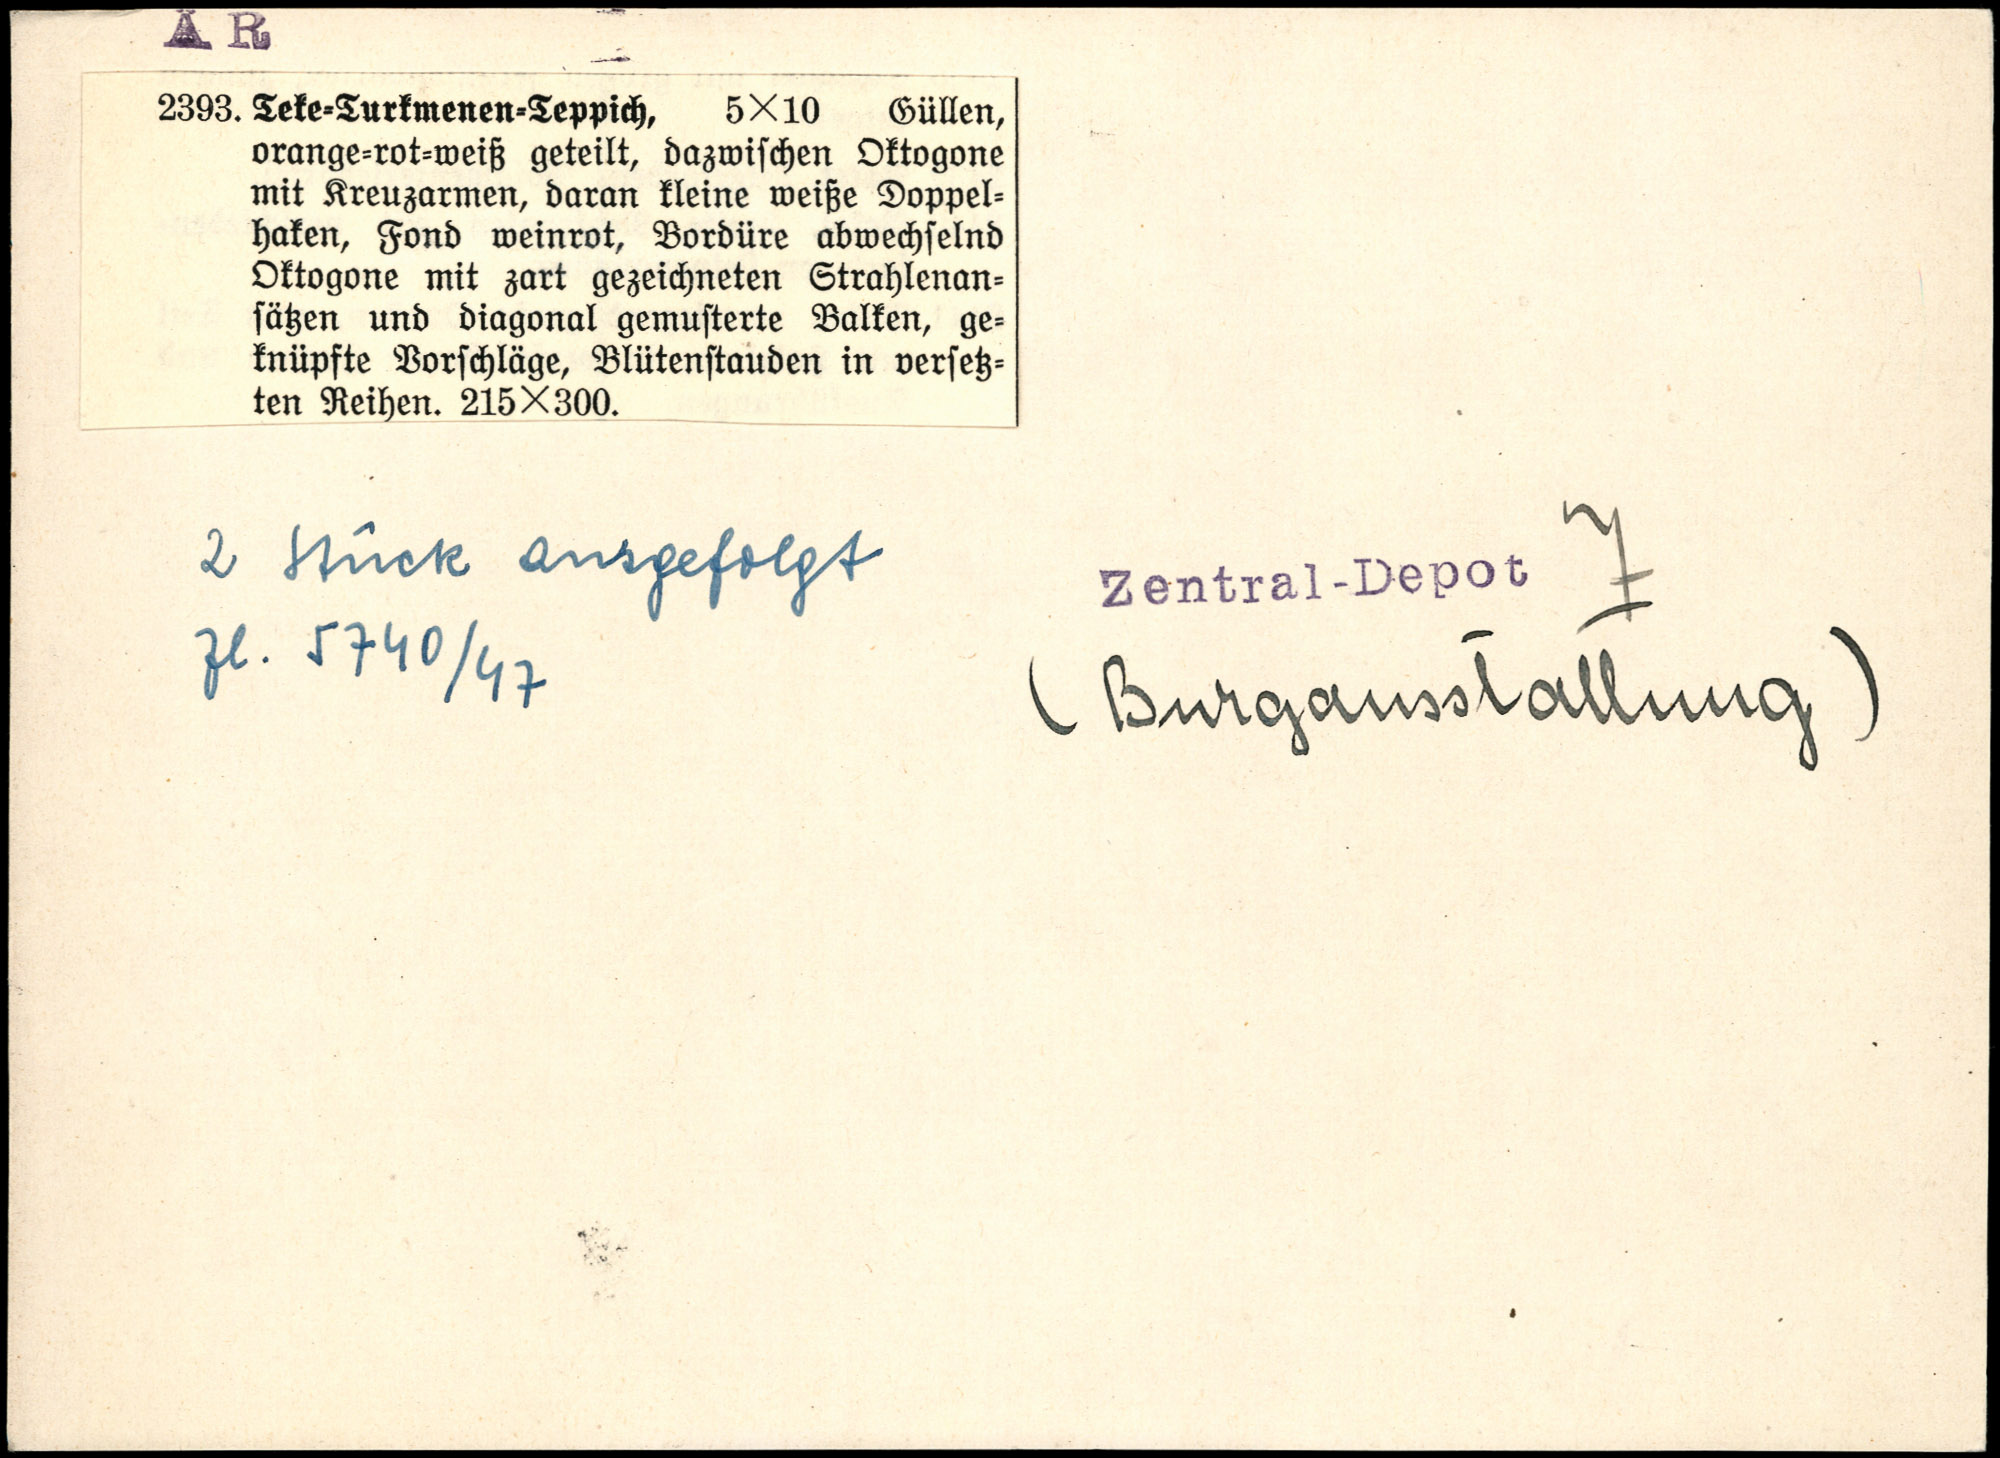 AR
2393. Teke-Turkmenen-Teppich, 5×10 Güllen,
orange-rot-weiß geteilt, dazwischen Oktogone
mit Kreuzarmen, daran kleine weiße Doppel-
haken, Fond weinrot, Bordüre abwechselnd
Oktogone mit zart gezeichneten Strahlenan-
sätzen und diagonal gemusterte Balken, ge-
knüpfte Vorschläge, Blütenstauden in versetz-
ten Reihen. 215×300.
2 Stück ausgefolgt
Zl. 5740/47
Zentral-Depot 7
(Burgausstallung)